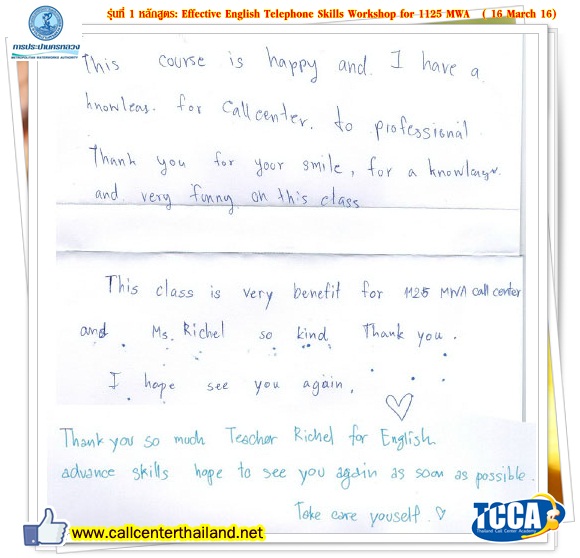 รุ่นที่ 1 หลักสูตร: Effective English Telephone Skills Workshop for 1125 MWA ( 16 March 16)
การประปานครหลวง
METROPOLITAN WATERWORKS AUTHORITY
This course is happy and I have a
knowleas. for Callcenter. to professional
Thank you for your smile, for a knowlage.
and very funny on this class
This class is very benefit for 1125 MWA call center
and Ms. Richel so kind Thank you.
I hope see you again.
Thank you so much Teacher Richel for English
advance skills hope to see you again as soon as possible.
Take care youself.
www.callcenterthailand.net
TCCA
Thailand Call Center Academy